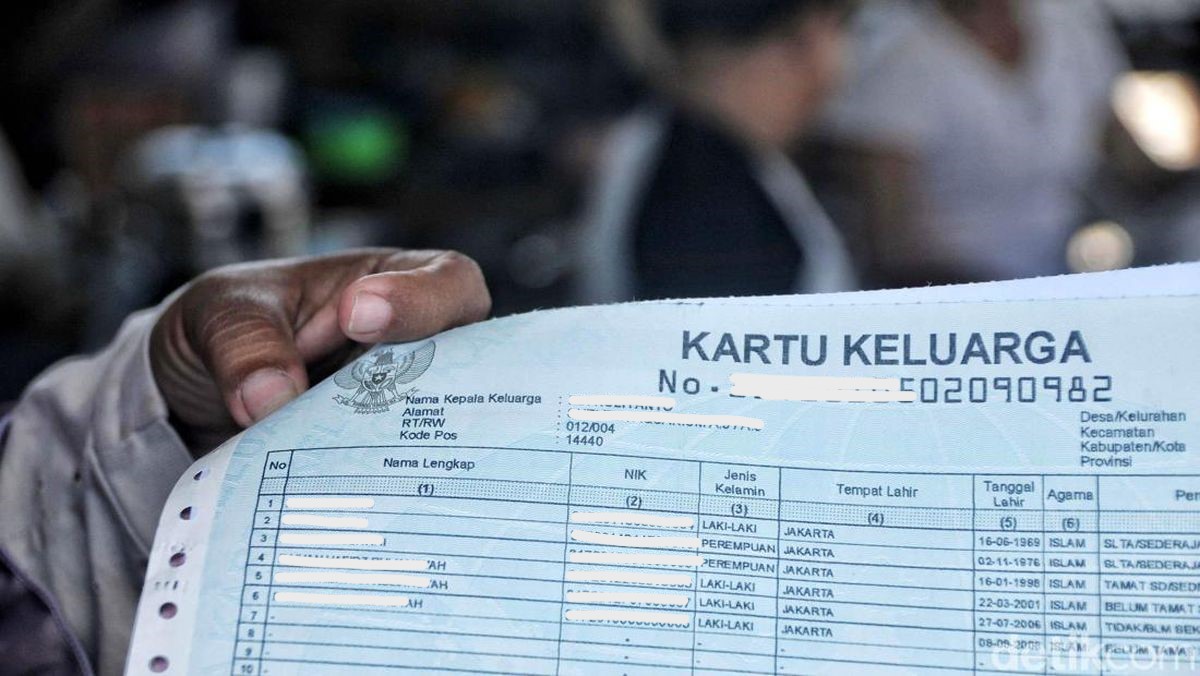 KARTU KELUARGA
No. 502090982
Nama Kepala Keluarga :
Alamat :
RT/RW : 012/004
Kode Pos : 14440
Desa/Kelurahan
Kecamatan
Kabupaten/Kota
Provinsi
No Nama Lengkap NIK Jenis Kelamin Tempat Lahir Tanggal Lahir Agama
(1) (2) (3) (4) (5) (6)
1 LAKI-LAKI JAKARTA 16-06-1969 ISLAM SLTA/SEDERAJA
2 PEREMPUAN JAKARTA 02-11-1976 ISLAM SLTA/SEDERAJ
3 PEREMPUAN JAKARTA 16-01-1998 ISLAM TAMAT SD/SEDE
4 LAKI-LAKI JAKARTA 22-03-2001 ISLAM BELUM TAMAT
5 LAKI-LAKI JAKARTA 27-07-2006 ISLAM TIDAK/BLM SEK
6 LAKI-LAKI JAKARTA ISLAM BELUM TAMAT
7 -
8 - -
9 - -
10 -
detikcom